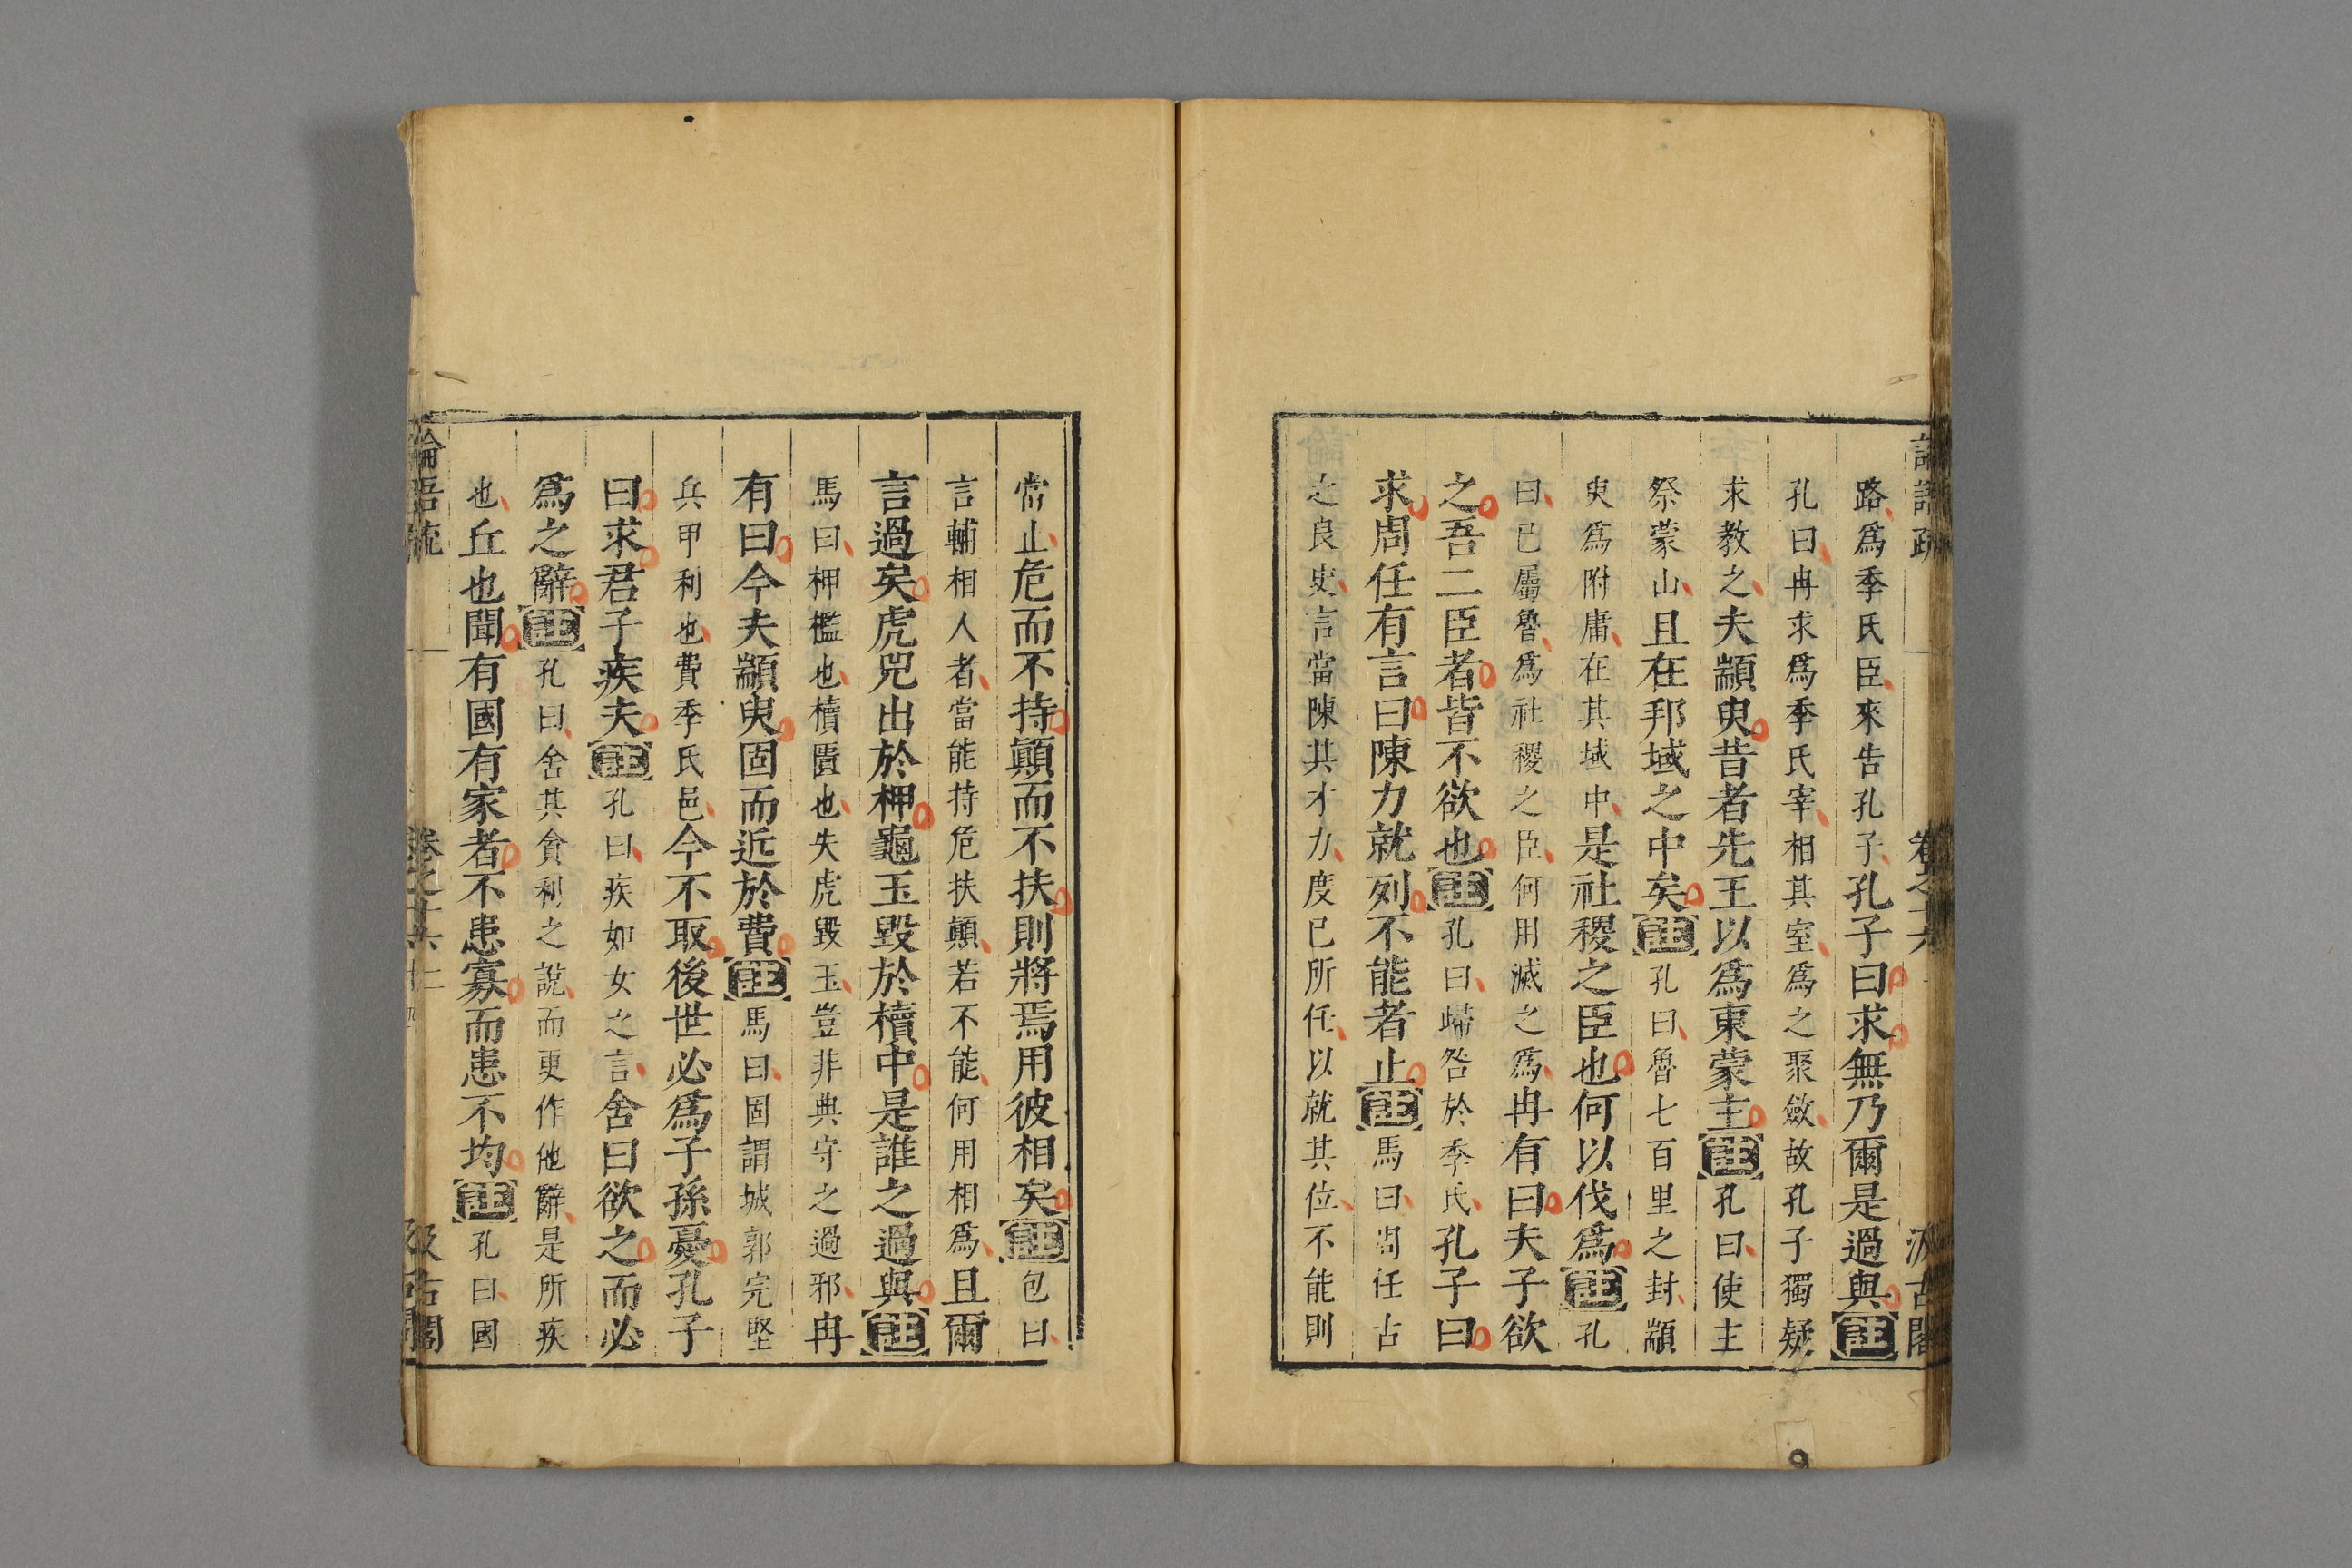 論語疏 卷之十六 汲古閣
路爲季氏臣來告孔子孔子曰求無乃爾是過與註
孔曰冉求爲季氏宰相其室爲之聚斂故孔子獨疑
求教之夫顓臾昔者先王以爲東蒙主註孔曰使主
祭蒙山且在邦域之中矣註孔曰魯七百里之封顓
臾爲附庸在其域中是社稷之臣也何以伐爲註孔
曰已屬魯爲社稷之臣何用滅之爲冉有曰夫子欲
之吾二臣者皆不欲也註孔曰歸咎於季氏孔子曰
求周任有言曰陳力就列不能者止註馬曰周任古
之良史言當陳其才力度已所任以就其位不能則
當止危而不持顛而不扶則將焉用彼相矣註包曰
言輔相人者當能持危扶顛若不能何用相爲且爾
言過矣虎兕出於柙龜玉毀於櫝中是誰之過與註
馬曰柙檻也櫝匱也失虎毀玉豈非典守之過邪冉
有曰今夫顓臾固而近於費註馬曰固謂城郭完堅
兵甲利也費季氏邑今不取後世必爲子孫憂孔子
曰求君子疾夫註孔曰疾如女之言舍曰欲之而必
爲之辭註孔曰舍其貪利之說而更作他辭是所疾
也丘也聞有國有家者不患寡而患不均註孔曰國
論語疏 卷之十六 汲古閣